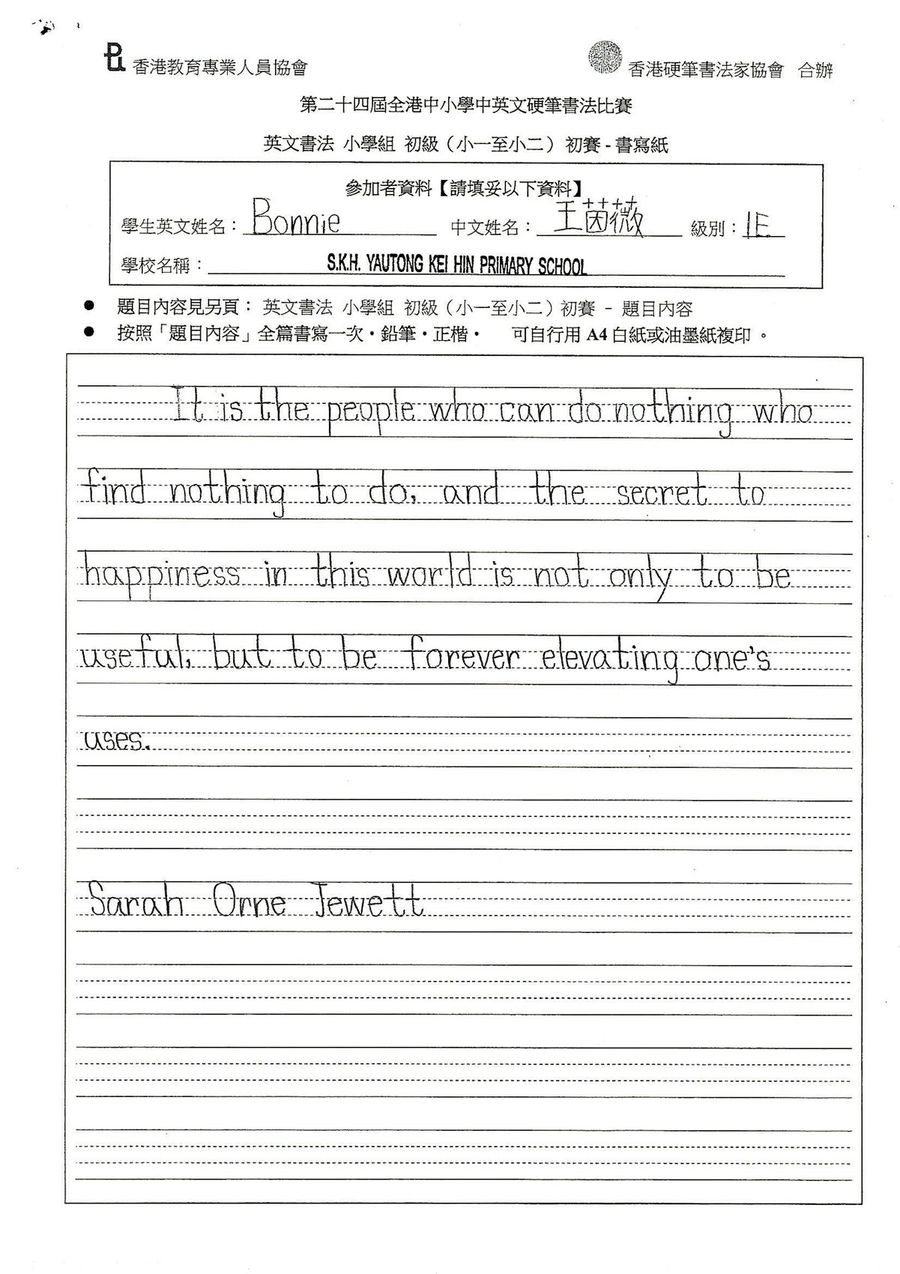 香港教育專業人員協會
香港硬筆書法家協會 合辦
第二十四屆全港中小學中英文硬筆書法比賽
英文書法 小學組 初級（小一至小二）初賽 - 書寫紙
參加者資料【請填妥以下資料】
學生英文姓名： Bonnie 中文姓名： 王茵薇 級別： 1E
學校名稱： S.K.H. YAUTONG KEI HIN PRIMARY SCHOOL
● 題目內容見另頁： 英文書法 小學組 初級（小一至小二）初賽 - 題目內容
● 按照「題目內容」全篇書寫一次‧鉛筆‧正楷‧ 可自行用 A4 白紙或油墨紙複印 。
It is the people who can do nothing who
find nothing to do, and the secret to
happiness in this world is not only to be
useful, but to be forever elevating one's
uses.
Sarah Orne Jewett